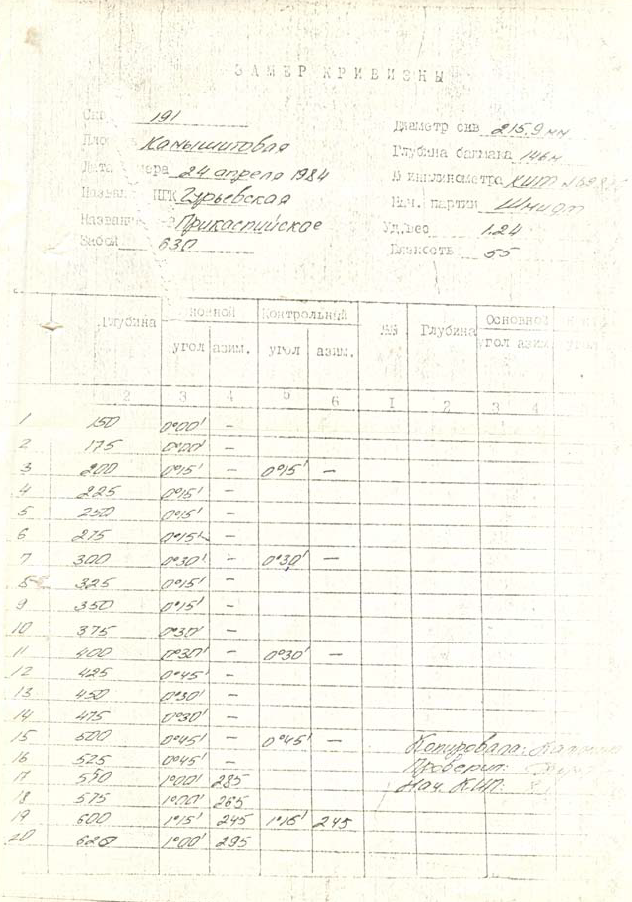 ЗАМЕР КРИВИЗНЫ
191
Камышитовая
24 апреля 1984
Гурьевская
Прикаспийское
Забой 630
Диаметр скв 215.9 мм
Глубина башмака 146м
инклинометра КИТ
Нач. партии Шмидт
Уд.вес 1.24
Вязкость 55
Глубина Контрольный №№ Глубина Основной
угол азим. угол азим. угол азим. угол
2 3 4 5 6 I 2 3 4
1 150 0°00' -
2 175 0°00' -
3 200 0°15' - 0°15' -
4 225 0°15' -
5 250 0°15' -
6 275 0°15' -
7 300 0°30' - 0°30' -
8 325 0°15' -
9 350 0°15' -
10 375 0°30' -
11 400 0°30' - 0°30' -
12 425 0°45' -
13 450 0°30' -
14 475 0°30' -
15 500 0°45' - 0°45' -
16 525 0°45' -
17 550 1°00' 285
18 575 1°00' 265
19 600 1°15' 245 1°15' 245
20 620 1°00' 295
Копировала:
Проверил:
Нач. КИП: